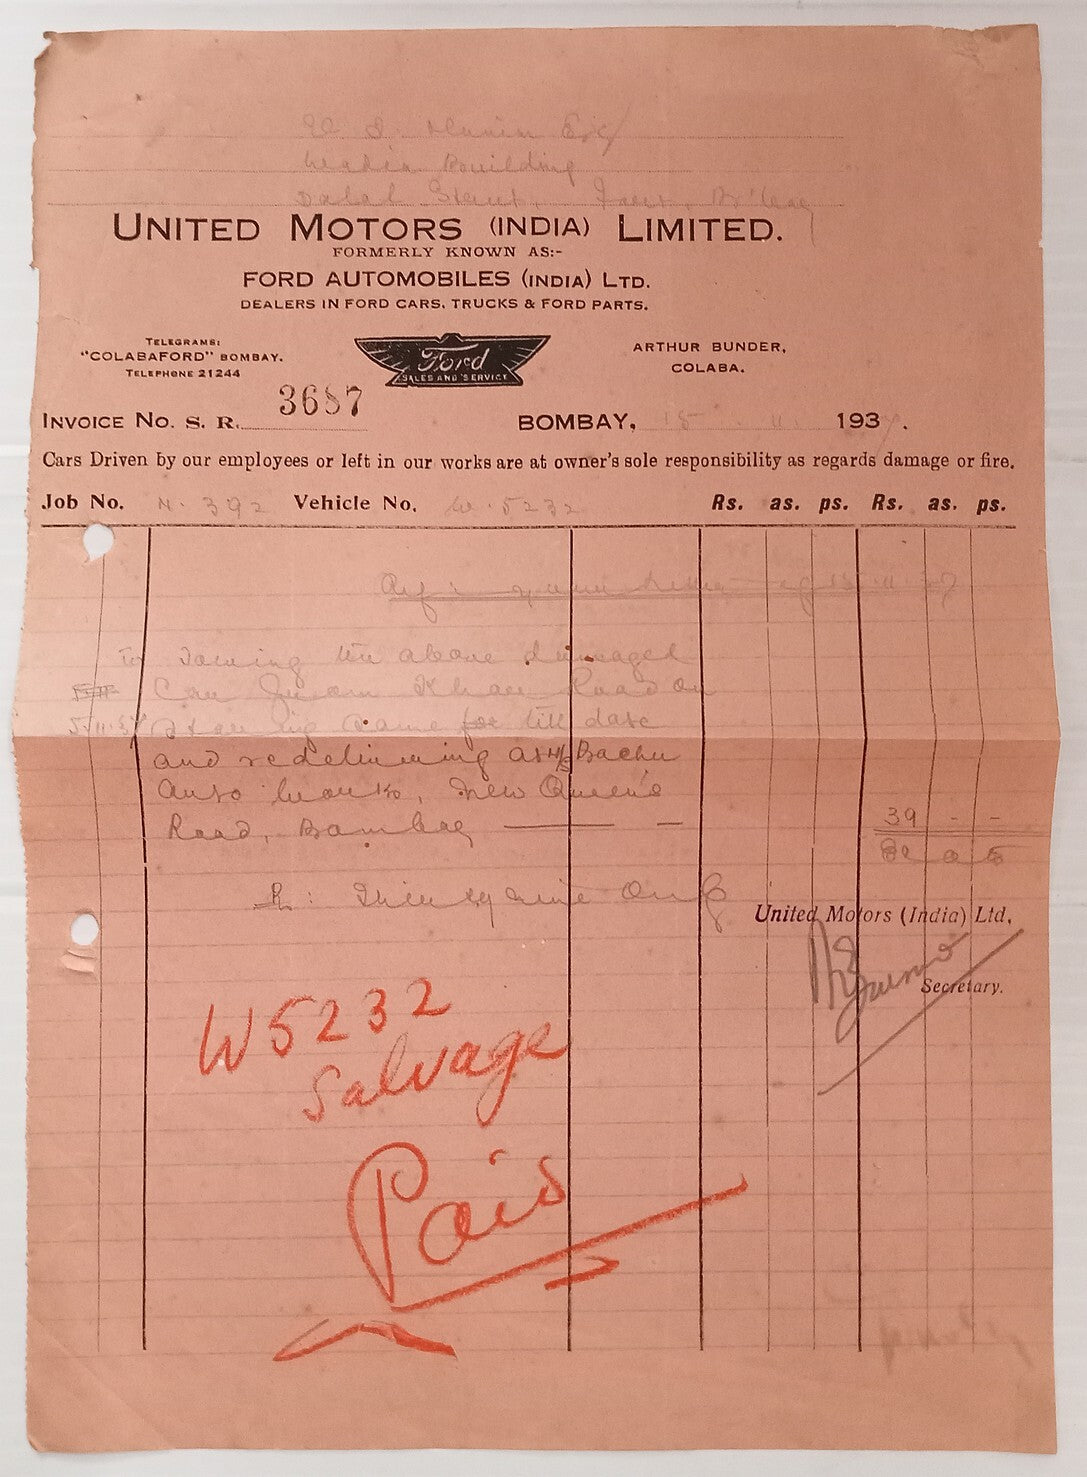 Building
Dalal Street, Fort, B'bay
UNITED MOTORS (INDIA) LIMITED.
FORMERLY KNOWN AS:-
FORD AUTOMOBILES (INDIA) LTD.
DEALERS IN FORD CARS, TRUCKS & FORD PARTS.
TELEGRAMS:
"COLABAFORD" BOMBAY.
TELEPHONE 21244
Ford
SALES AND SERVICE
ARTHUR BUNDER,
COLABA.
INVOICE NO. S. R. 3687
BOMBAY, 15 . 11. 1937.
Cars Driven by our employees or left in our works are at owner's sole responsibility as regards damage or fire.
Job No. N. 392 Vehicle No. W. 5232 Rs. as. ps. Rs. as. ps.
To Towing the above damaged
Car from Khar Road on
5/11/37 & same for till date
and redelivering at M/s Bachu
Auto Works, New Queen's
Road, Bombay — — 39 - -
Rs: Thirty nine Only
United Motors (India) Ltd.
Secretary.
W 5232
Salvage
Paid